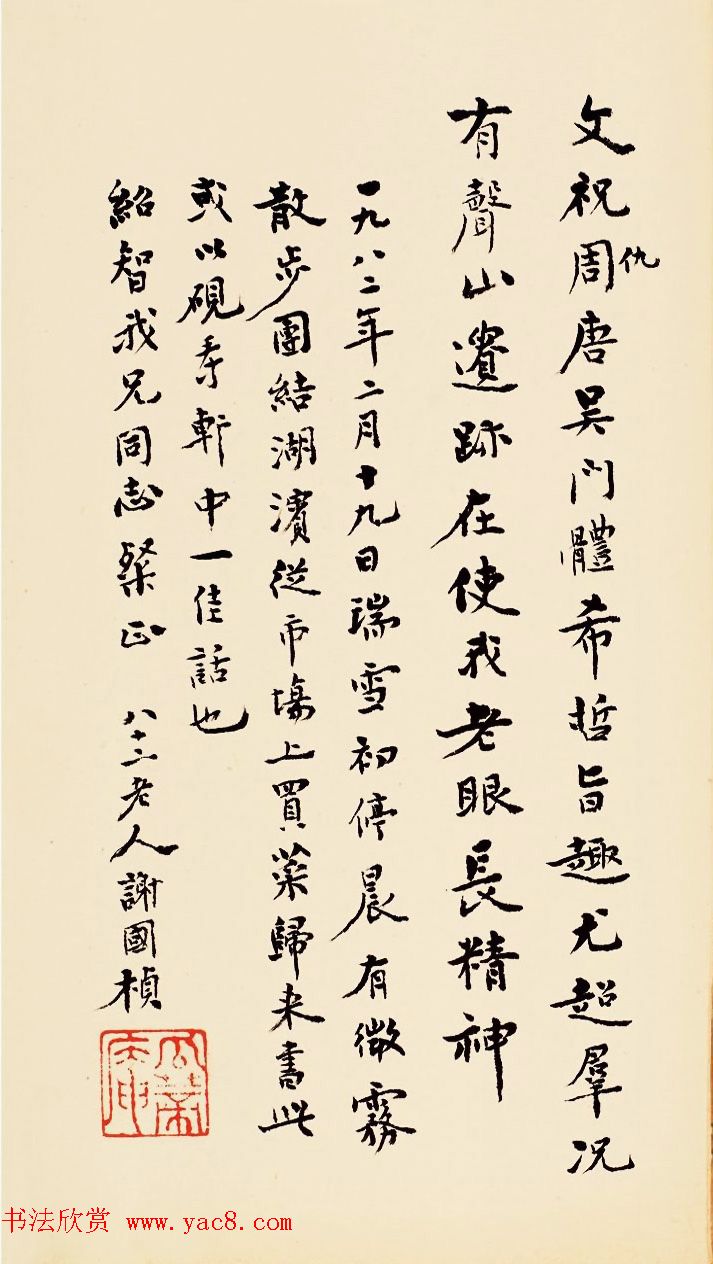 文祝周仇唐吴門體希哲旨趣尤超羣况
有聲山遺跡在使我老眼長精神
一九八二年二月十九日瑞雪初停晨有微霧
散步團結湖濱從市場上買菜歸来書此
或以硯軒中一佳話也
紹智我兄同志粲正 八十二老人謝國楨
瓜蒂庵
书法欣赏 www.yac8.com